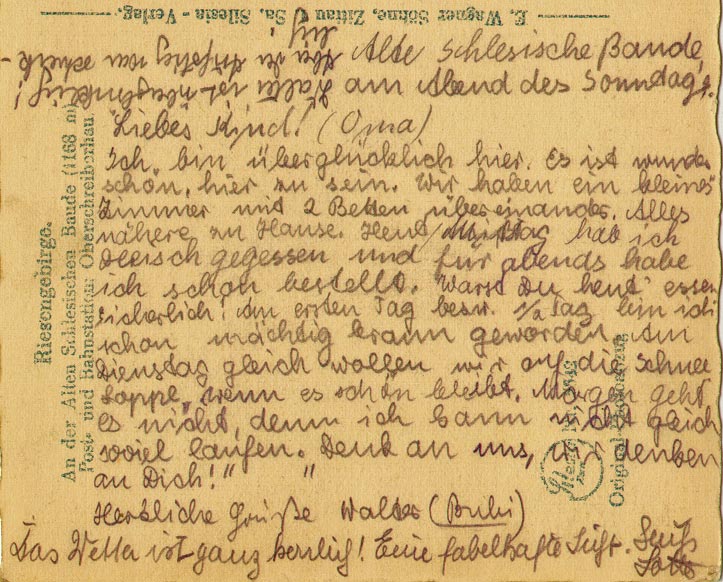 Alte Schlesische Baude,
am Abend des Sonndags.
"Liebes Kind! (Oma)
Ich bin überglücklich hier. Es ist wunder
schön, hier zu sein. Wir haben ein kleines
Zimmer mit 2 Betten übereinander. Alles
nähere zu Hause. Heut Mittag hab ich
Fleisch gegessen und für abends habe
ich schon bestellt. Warst Du heut essen
sicherlich! Am ersten Tag bezw. 1/2 Tag bin ich
schon mächtig braun geworden. Am
Dienstag gleich wollen wir auf die Schnee
koppe, wenn es schön bleibt. Morgen geht
es nicht, denn ich kann nicht gleich
soviel laufen. Denk an uns, wir denken
an Dich!"
Herzliche Grüße Walter (Bubi)
Das Wetter ist ganz herrlich! Eine fabelhafte Luft.
Riesengebirge.
An der Alten Schlesischen Baude (1168 m)
Post- und Bahnstation: Oberschreiberhau.
E. Wagner Söhne, Zittau i. Sa. Silesia-Verlag.
Original Photograph